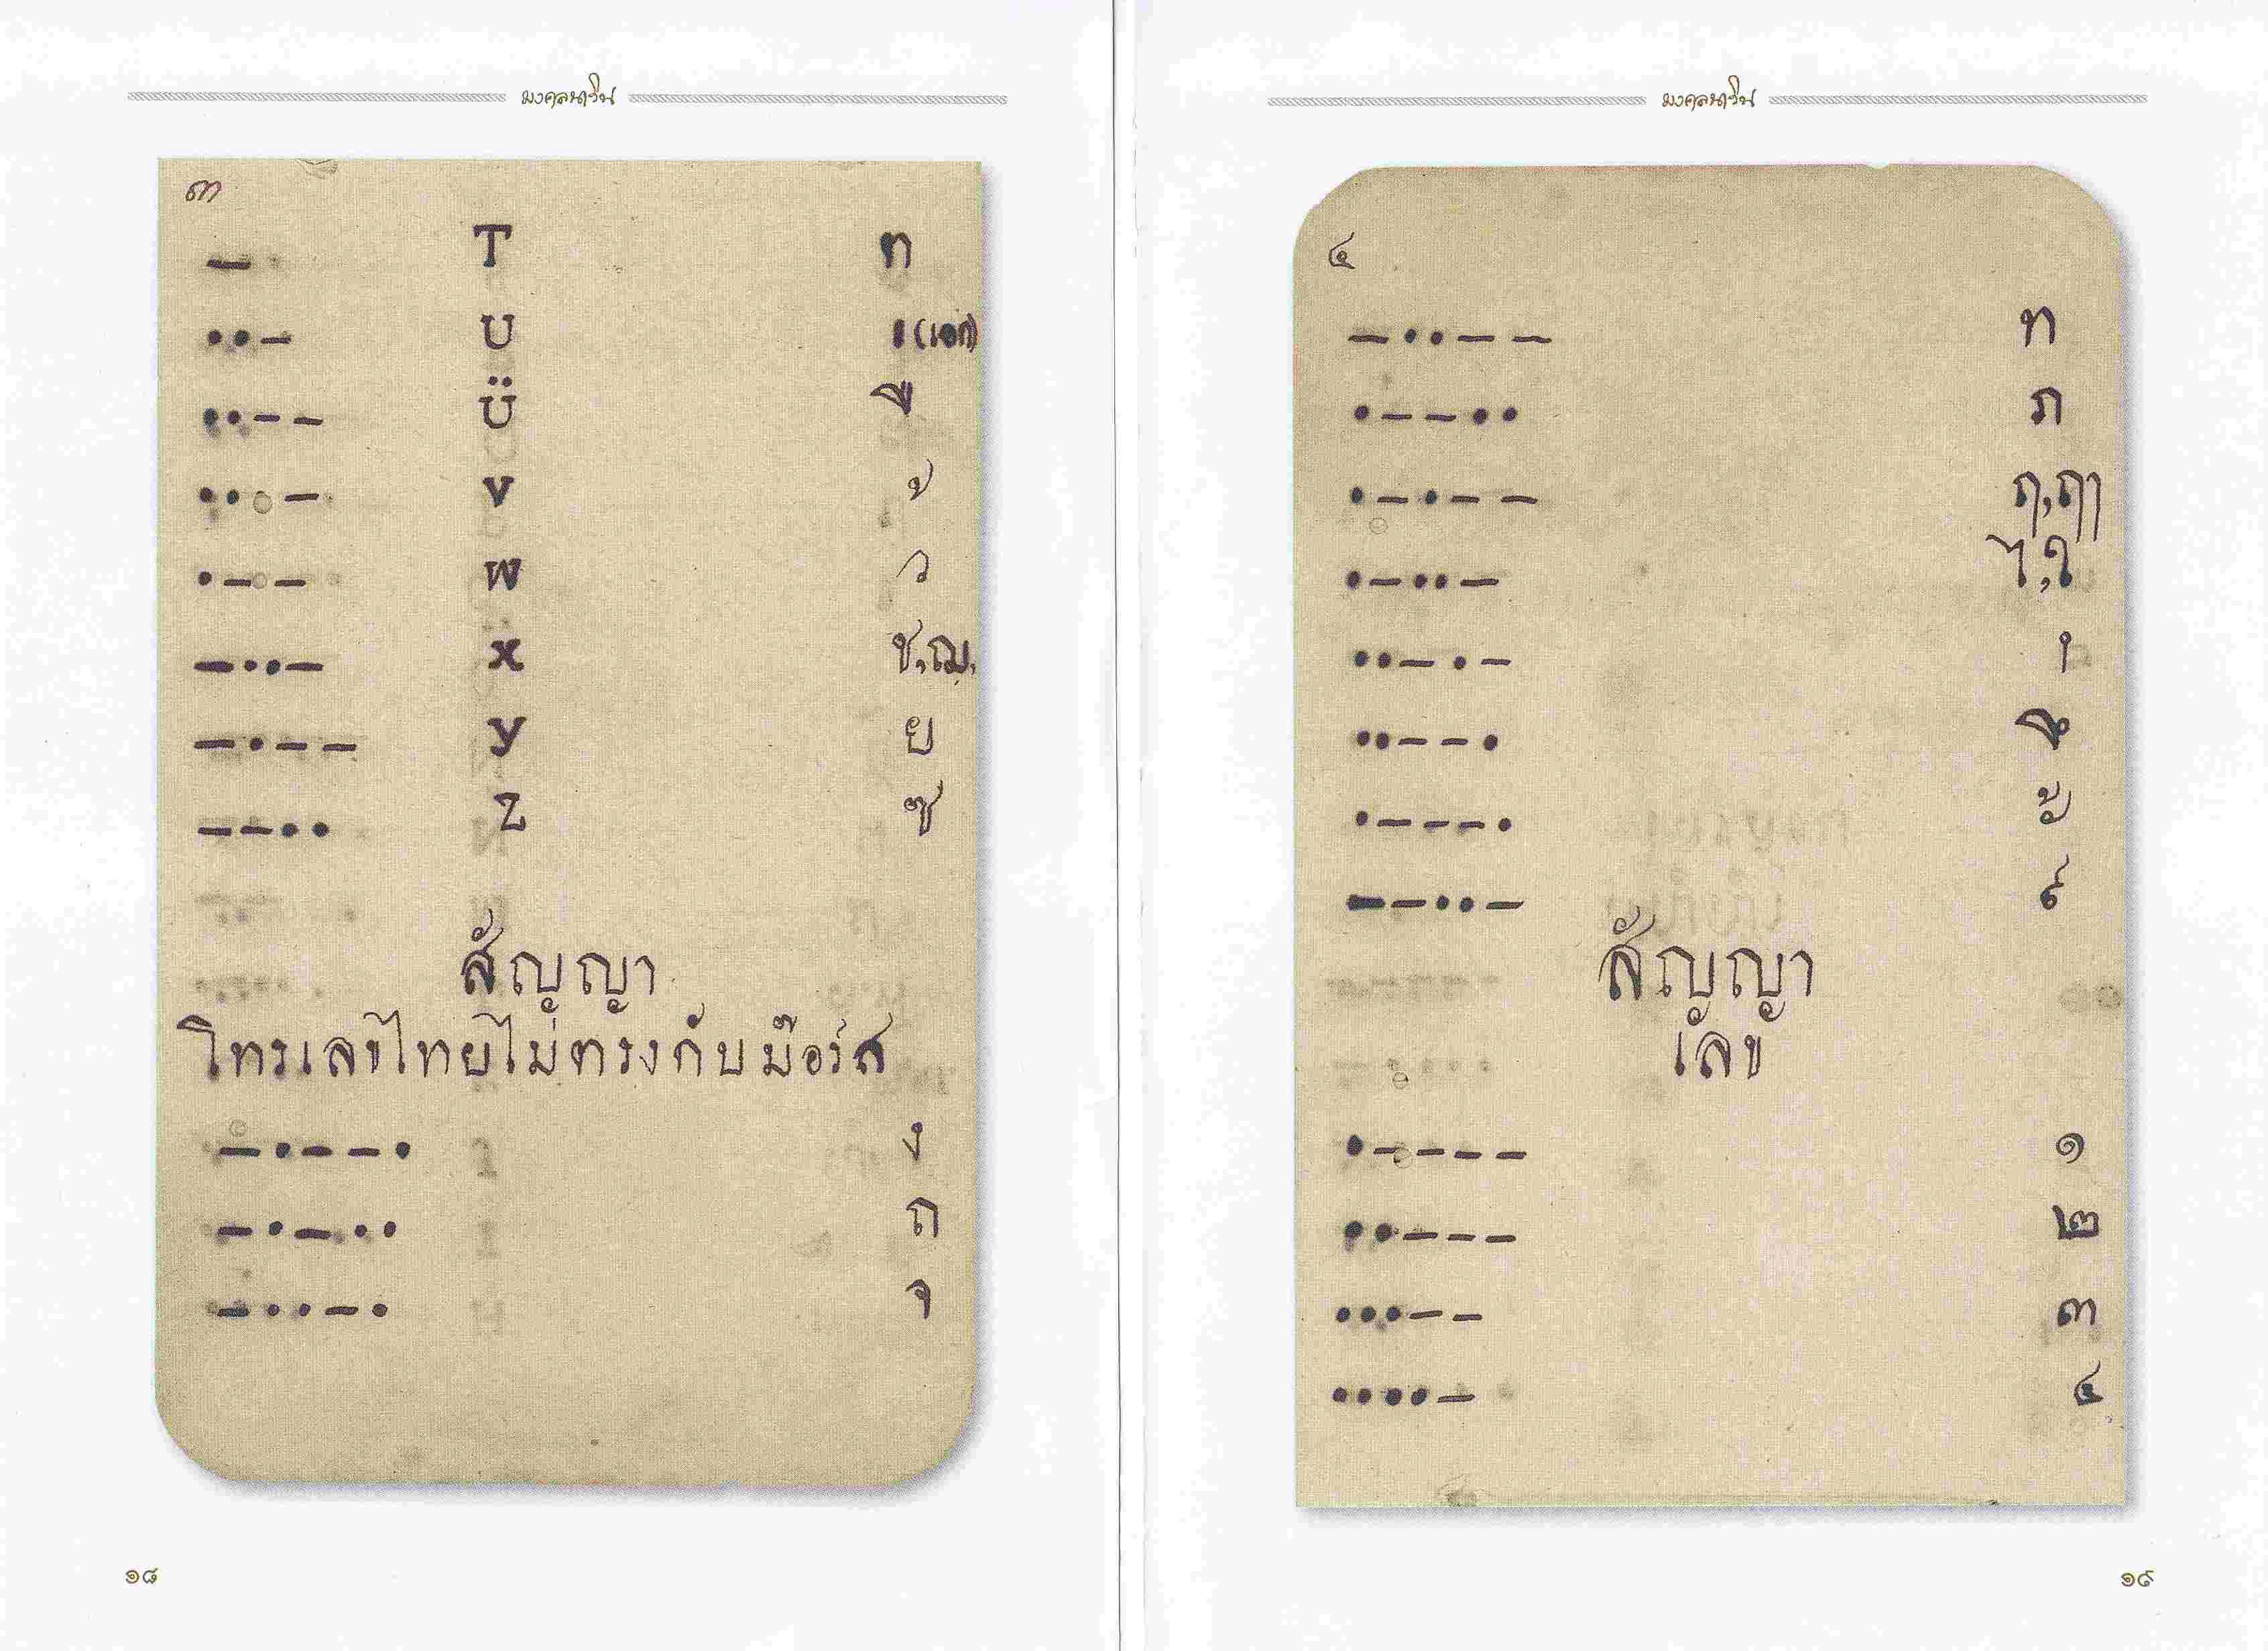 มงคลนาวิน
๓
— T ต
••— U ่(เอก)
••—— Ü ื
•• — V
•—— W ว
—••— X ช,ฌ,
—•—— Y ย
——•• Z ซ
สัญญา
โทรเลขไทยไม่ตรงกับม๊อร์ส
—•——• ง
—•—•• ถ
—••—• จ
๑๘
มงคลนาวิน
๔
—••—— ท
•——•• ภ
•—•—— ฤ,ฤๅ
•—••— ไ,ใ
••—•—
••——• ึ
•———•
——••—
สัญญา
เลข
•———— ๑
••——— ๒
•••—— ๓
••••— ๔
๑๙